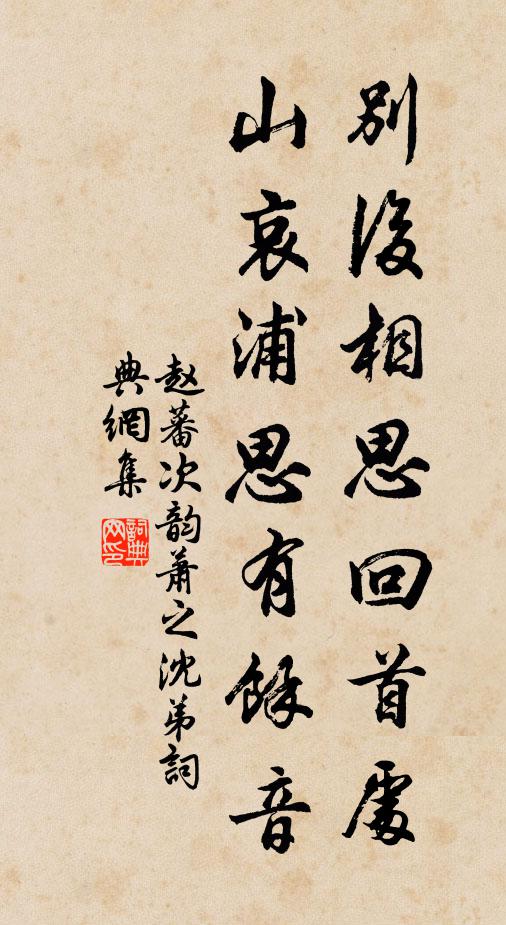 別後相思回首處
山哀浦思有餘音
赵蕃次韵蕭之沈弟詞
典網集
詞典網印